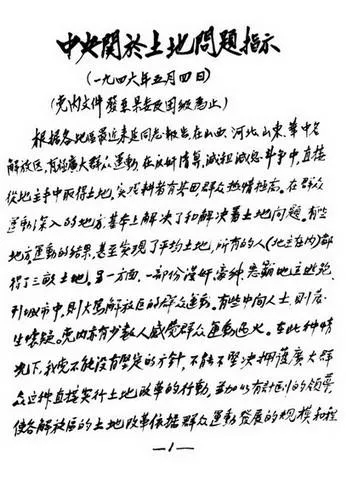 中央關於土地問題指示
(一九四六年五月四日)
(党内文件 發至县委及团級爲止)
根据各地區最近来延同志報告,在山西、河北、山東、華中各
解放区,有極廣大群众運動,在反奸、清算、減租、減息斗争中,直接
從地主手中取得土地,实現耕者有其田,群众热情極高。在群众
運動深入的地方,基本上解决了和解决着土地问題。有些
地方運動的结果,甚至实現了平均土地,所有的人(地主在内)都
得了三畝土地。另一方面,一部份漢奸、豪绅、悪霸、地主逃跑
到城市中,則大罵解放区的群众運動。有些中间人士,則发
生懷疑。党内亦有少数人感觉群众運動过火。在此种情
况下,我党不能没有堅定的方针,不能不堅决擁護廣大群
众这种直接实行土地改革的行動,並加以有計划的领导,
使各解放区的土地改革依据群众運動發展的规模和程
—1—